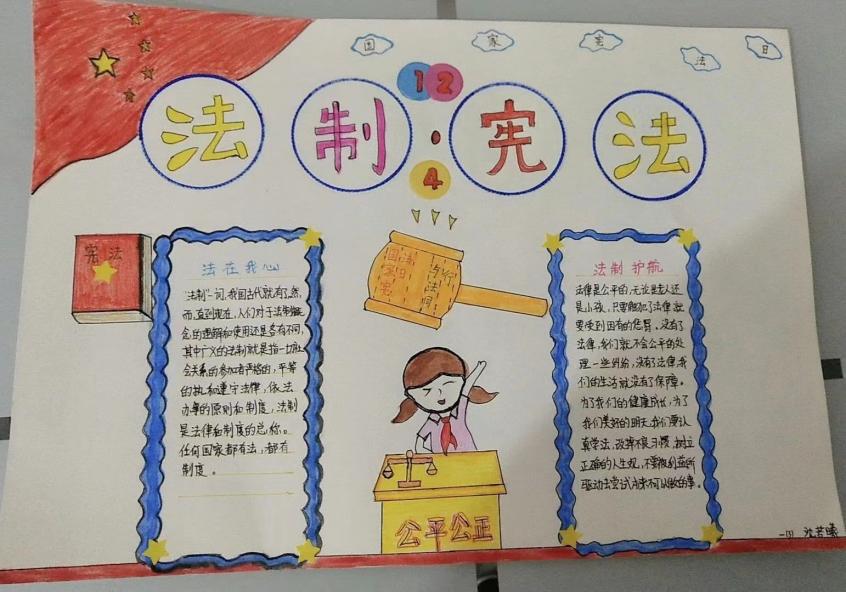 国 家 宪 法 日
12
4
法制·宪法
宪法
法在我心
"法制"一词,我国古代就有了,然
而,直到现在,人们对于法制概
念的理解和使用还是各有不同,
其中广义的法制就是指一切社
会关系的参加者严格的,平等
的执和遵守法律,依法
办事的原则和制度,法制
是法律和制度的总称。
任何国家都有法,都有
制度。
国家宪
法日
与法
同行
公平公正
法制护航
法律是公平的,无论是大人还
是小孩,只要触犯了法律就
要受到因有的惩罚。没有了
法律,我们就不会公平的处
理一些纠纷,没有了法律,我
们的生活就没有了保障。
为了我们的健康成长,为了
我们美好的明天,我们要认
真学法,改掉不良习惯,树立
正确的人生观,不要被利益所
驱动去尝试
做的事。